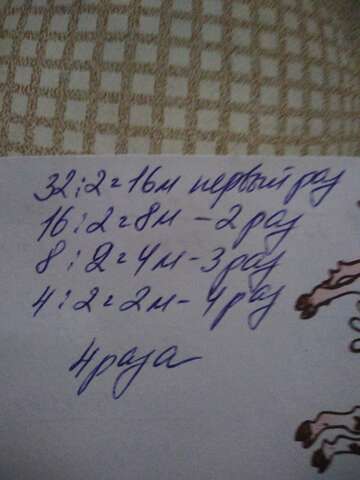 32:2=16м первый раз
16:2=8м - 2 раз
8:2=4м - 3 раз
4:2=2м - 4 раз
4 раза